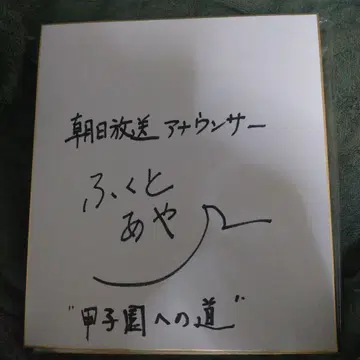 朝日放送 アナウンサー
ふくと
あや
"甲子園への道"